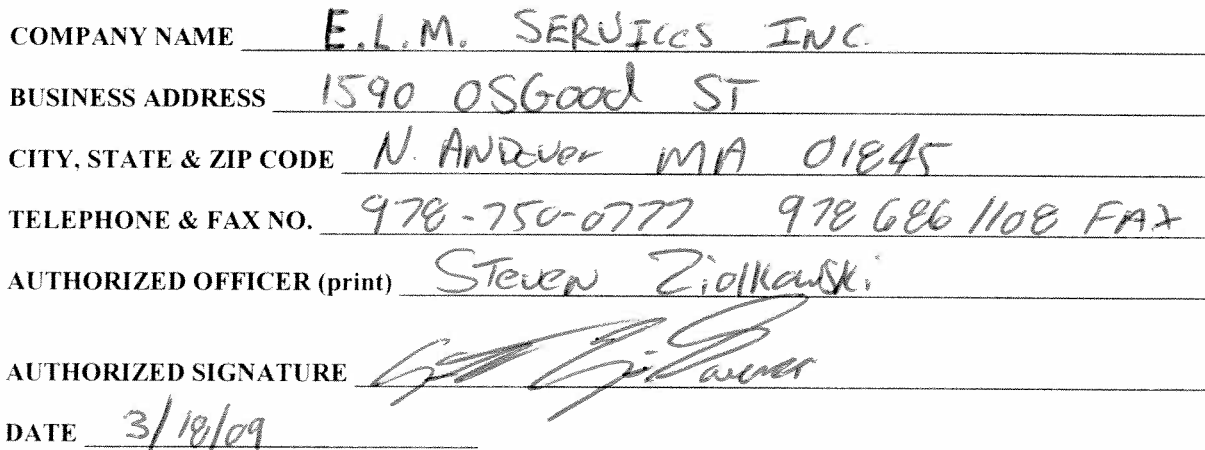 COMPANY NAME E.L.M. SERVICES INC.
BUSINESS ADDRESS 1590 OSGood ST
CITY, STATE & ZIP CODE N. ANDOVer MA 01845
TELEPHONE & FAX NO. 978-750-0777 978 686 1108 FAX
AUTHORIZED OFFICER (print) STeveN Ziolkowski
AUTHORIZED SIGNATURE
DATE 3/18/09